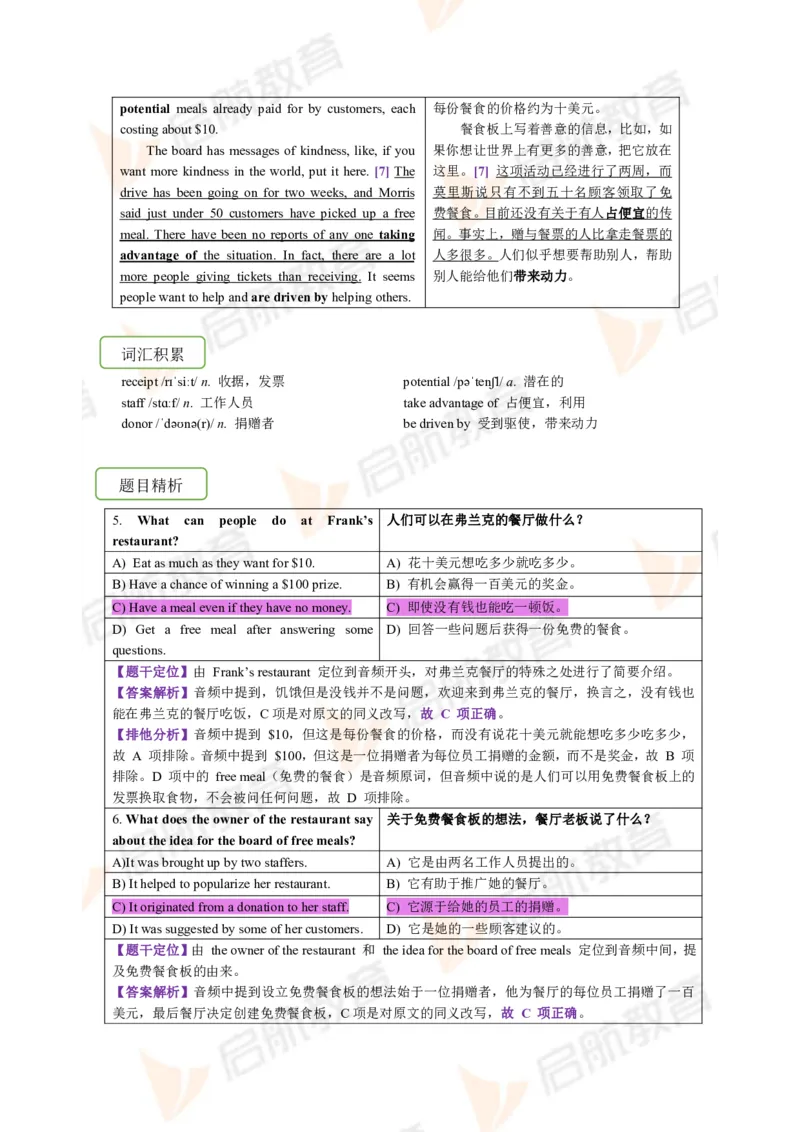 potential meals already paid for by customers, each
costing about $10.
The board has messages of kindness, like, if you
want more kindness in the world, put it here. [7] The
drive has been going on for two weeks, and Morris
said just under 50 customers have picked up a free
meal. There have been no reports of any one taking
advantage of the situation. In fact, there are a lot
more people giving tickets than receiving. It seems
people want to help and are driven by helping others.
每份餐食的价格约为十美元。
餐食板上写着善意的信息，比如，如
果你想让世界上有更多的善意，把它放在
这里。[7] 这项活动已经进行了两周，而
莫里斯说只有不到五十名顾客领取了免
费餐食。目前还没有关于有人占便宜的传
闻。事实上，赠与餐票的人比拿走餐票的
人多很多。人们似乎想要帮助别人，帮助
别人能给他们带来动力。
词汇积累
receipt /rɪˈsiːt/ n. 收据，发票
potential /pəˈtenʃl/ a. 潜在的
staff /stɑːf/ n. 工作人员
take advantage of 占便宜，利用
donor /ˈdəʊnə(r)/ n. 捐赠者
be driven by 受到驱使，带来动力
题目精析
5. What can people do at Frank's
restaurant?
人们可以在弗兰克的餐厅做什么？
A) Eat as much as they want for $10.
A) 花十美元想吃多少就吃多少。
B) Have a chance of winning a $100 prize.
B) 有机会赢得一百美元的奖金。
C) Have a meal even if they have no money.
C) 即使没有钱也能吃一顿饭。
D) Get a free meal after answering some
questions.
D) 回答一些问题后获得一份免费的餐食。
【题干定位】由 Frank's restaurant 定位到音频开头，对弗兰克餐厅的特殊之处进行了简要介绍。
【答案解析】音频中提到，饥饿但是没钱并不是问题，欢迎来到弗兰克的餐厅，换言之，没有钱也
能在弗兰克的餐厅吃饭，C项是对原文的同义改写，故 C 项正确。
【排他分析】音频中提到 $10，但这是每份餐食的价格，而没有说花十美元就能想吃多少吃多少，
故 A 项排除。音频中提到 $100，但这是一位捐赠者为每位员工捐赠的金额，而不是奖金，故 B 项
排除。D 项中的 free meal（免费的餐食）是音频原词，但音频中说的是人们可以用免费餐食板上的
发票换取食物，不会被问任何问题，故 D 项排除。
6. What does the owner of the restaurant say
about the idea for the board of free meals?
关于免费餐食板的想法，餐厅老板说了什么？
A)It was brought up by two staffers.
A) 它是由两名工作人员提出的。
B) It helped to popularize her restaurant.
B) 它有助于推广她的餐厅。
C) It originated from a donation to her staff.
C) 它源于给她的员工的捐赠。
D) It was suggested by some of her customers.
D) 它是她的一些顾客建议的。
【题干定位】由 the owner of the restaurant 和 the idea for the board of free meals 定位到音频中间，提
及免费餐食板的由来。
【答案解析】音频中提到设立免费餐食板的想法始于一位捐赠者，他为餐厅的每位员工捐赠了一百
美元，最后餐厅决定创建免费餐食板，C项是对原文的同义改写，故 C 项正确。
启航教育